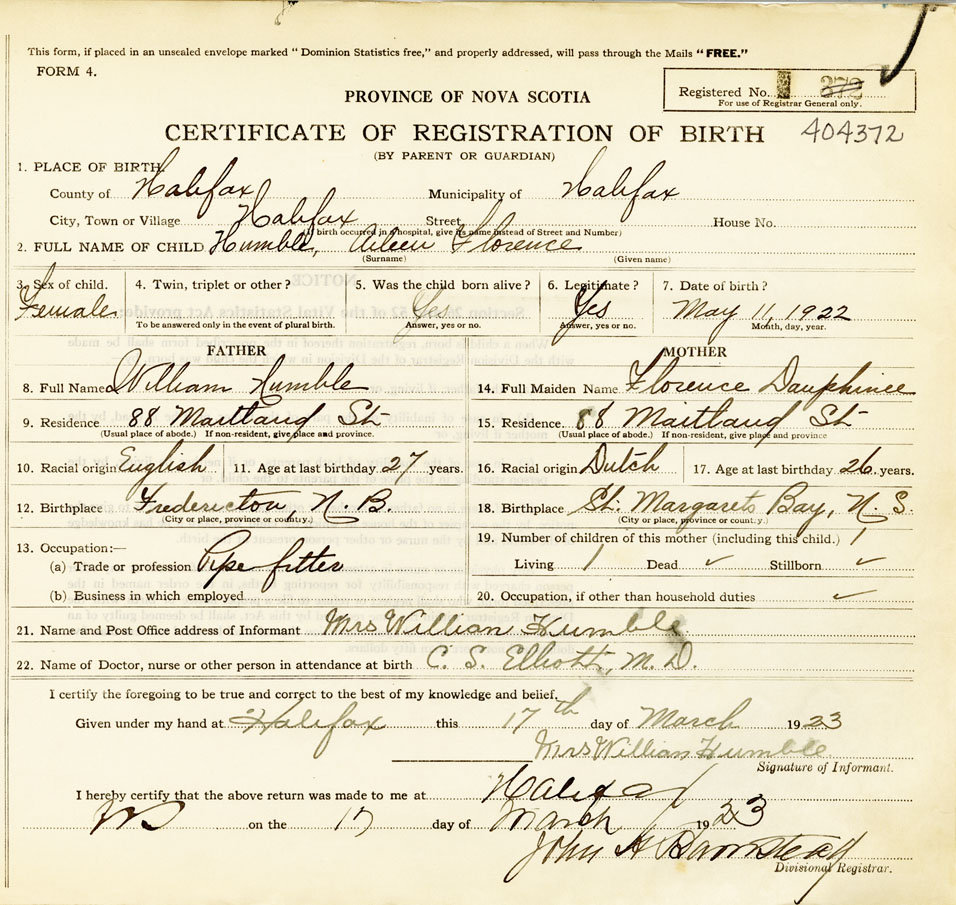 This form, if placed in an unsealed envelope marked "Dominion Statistics free," and properly addressed, will pass through the Mails "FREE."
FORM 4.
Registered No. 372
For use of Registrar General only.
PROVINCE OF NOVA SCOTIA
CERTIFICATE OF REGISTRATION OF BIRTH 404372
(BY PARENT OR GUARDIAN)
1. PLACE OF BIRTH.
County of Halifax Municipality of Halifax
City, Town or Village Halifax Street House No.
(If birth occurred in a hospital, give its name instead of Street and Number)
2. FULL NAME OF CHILD Humble, Aileen Florence
(Surname) (Given name)
3. Sex of child. 4. Twin, triplet or other? 5. Was the child born alive? 6. Legitimate? 7. Date of birth?
Female Yes Yes May 11, 1922
To be answered only in the event of plural birth. Answer, yes or no. Answer, yes or no. Month, day, year.
FATHER MOTHER
8. Full Name William Humble 14. Full Maiden Name Florence Dauphinee
9. Residence 88 Maitland St 15. Residence. 88 Maitland St
(Usual place of abode.) If non-resident, give place and province. (Usual place of abode.) If non-resident, give place and province
10. Racial origin English 11. Age at last birthday 27 years. 16. Racial origin Dutch 17. Age at last birthday 26 years.
12. Birthplace Fredericton, N. B. 18. Birthplace St. Margarets Bay, N. S.
(City or place, province or country.) (City or place, province or country.)
13. Occupation:— 19. Number of children of this mother (including this child.) 1
(a) Trade or profession Pipe fitter Living 1 Dead ✓ Stillborn ✓
(b) Business in which employed 20. Occupation, if other than household duties ✓
21. Name and Post Office address of Informant Mrs William Humble
22. Name of Doctor, nurse or other person in attendance at birth C. S. Elliott, M. D.
I certify the foregoing to be true and correct to the best of my knowledge and belief.
Given under my hand at Halifax this 17th day of March 1923
Mrs William Humble
Signature of Informant.
I hereby certify that the above return was made to me at Halifax
NS on the 17 day of March 1923
John H Barnstead
Divisional Registrar.